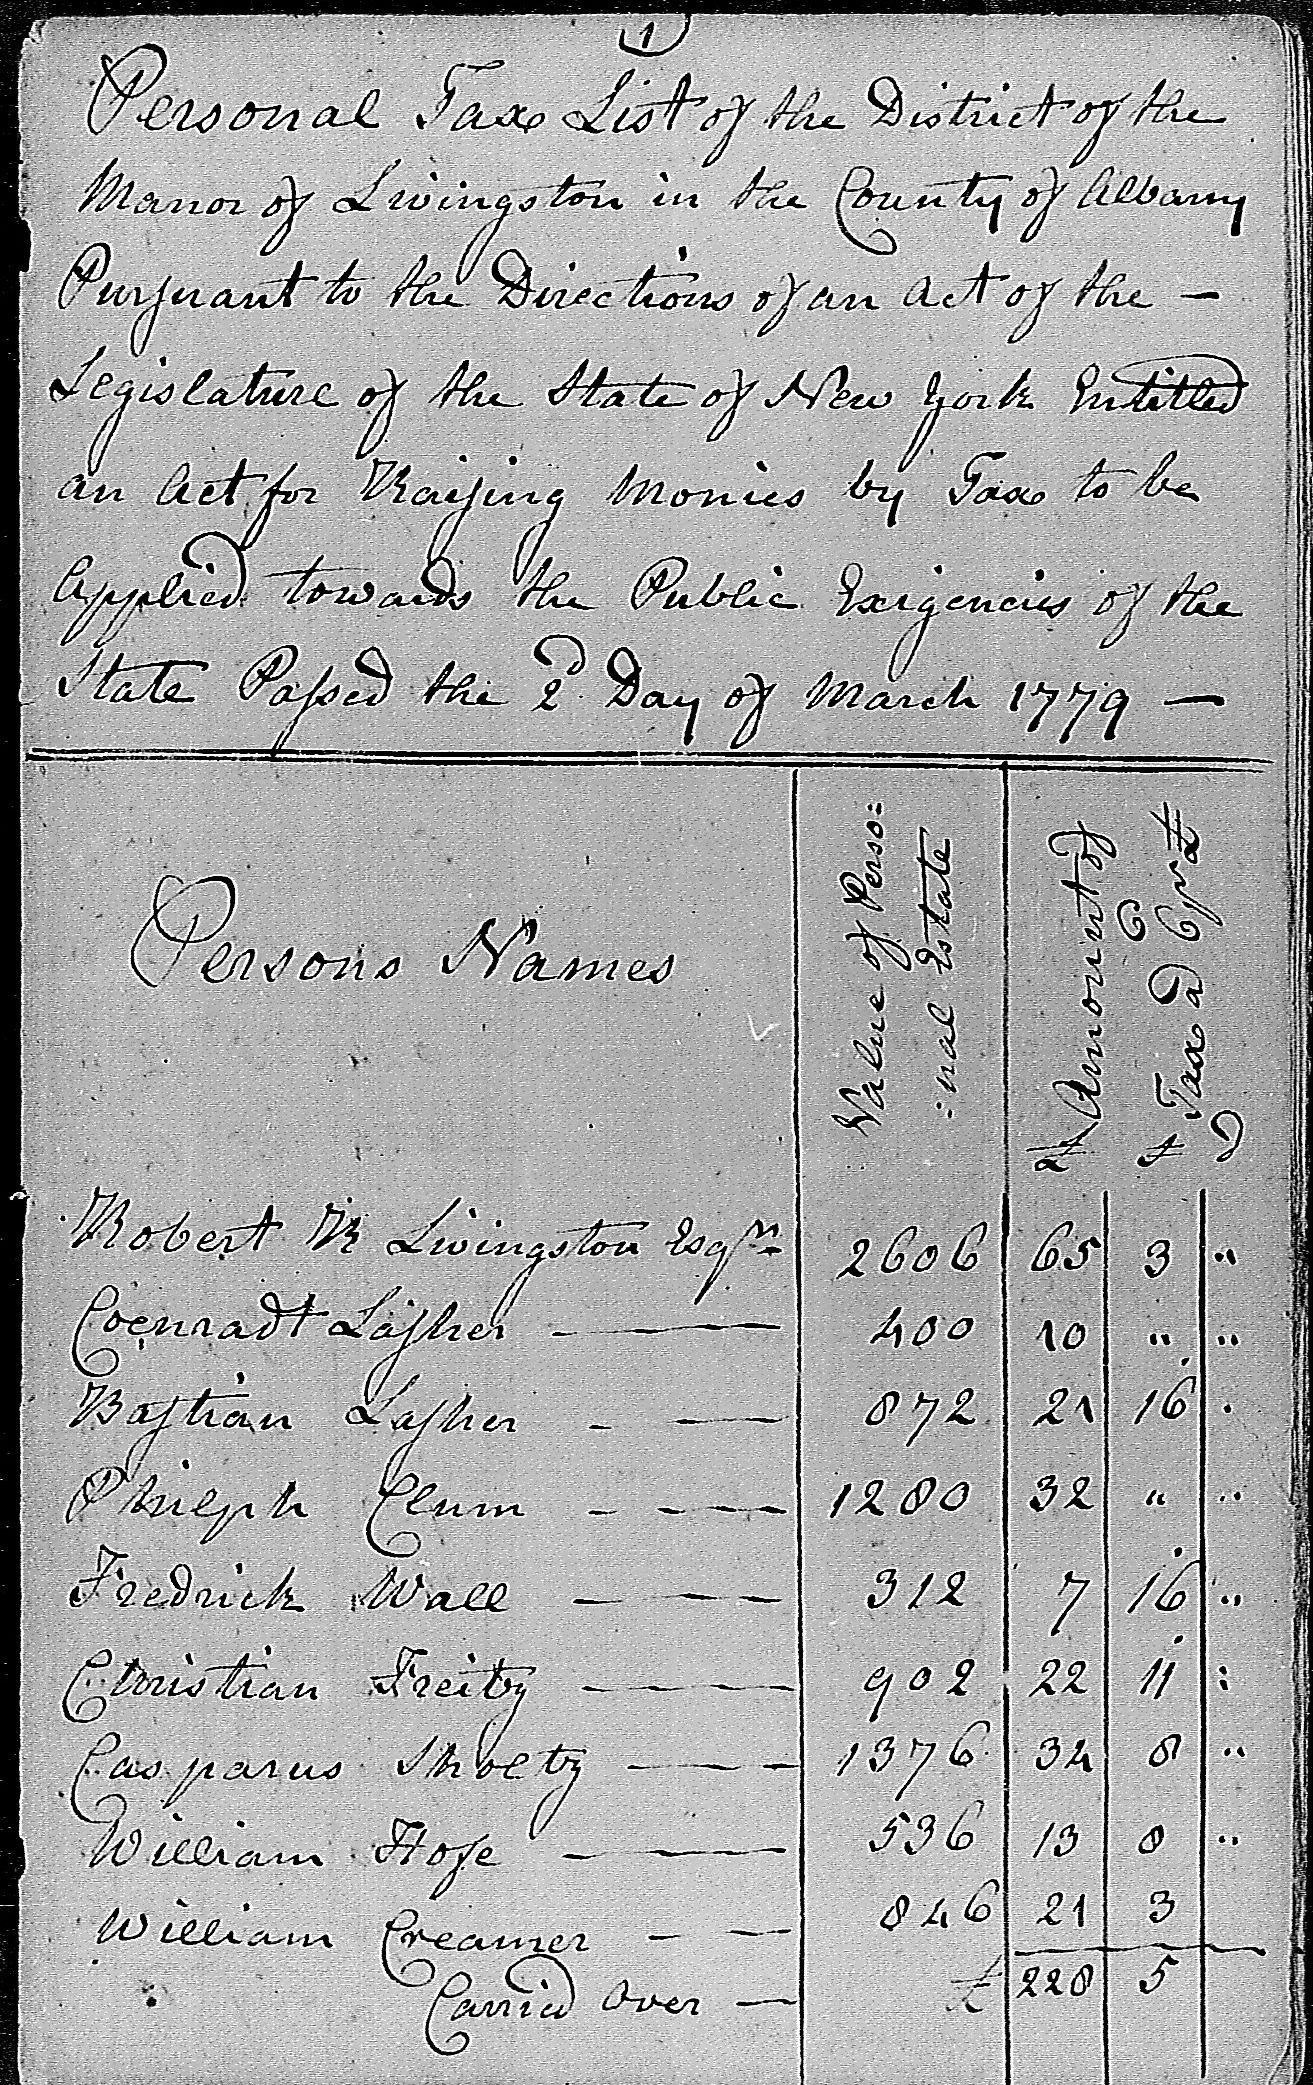 1
Personal Tax List of the District of the
Manor of Livingston in the County of Albany
Pursuant to the Directions of an Act of the —
Legislature of the State of New York Entitled
an Act for Raising Monies by Tax to be
Applied towards the Public Exigencies of the
State Passed the 2d Day of March 1779 —
Persons Names
Value of Perso:
:nal Estate
Amount of
Tax a 6 pr £
£ s d
Robert R Livingston Esqr 2606 65 3 "
Coenradt Lasher 400 10 " "
Bastian Lasher 872 21 16 .
Phileph Clum 1280 32 " "
Fredrick Wall 312 7 16 "
Christian Freitz 902 22 11 :
Casparus Sholtz 1376 34 8 "
William Hose 536 13 8 "
William Creamer 846 21 3
Carried Over — £ 228 5